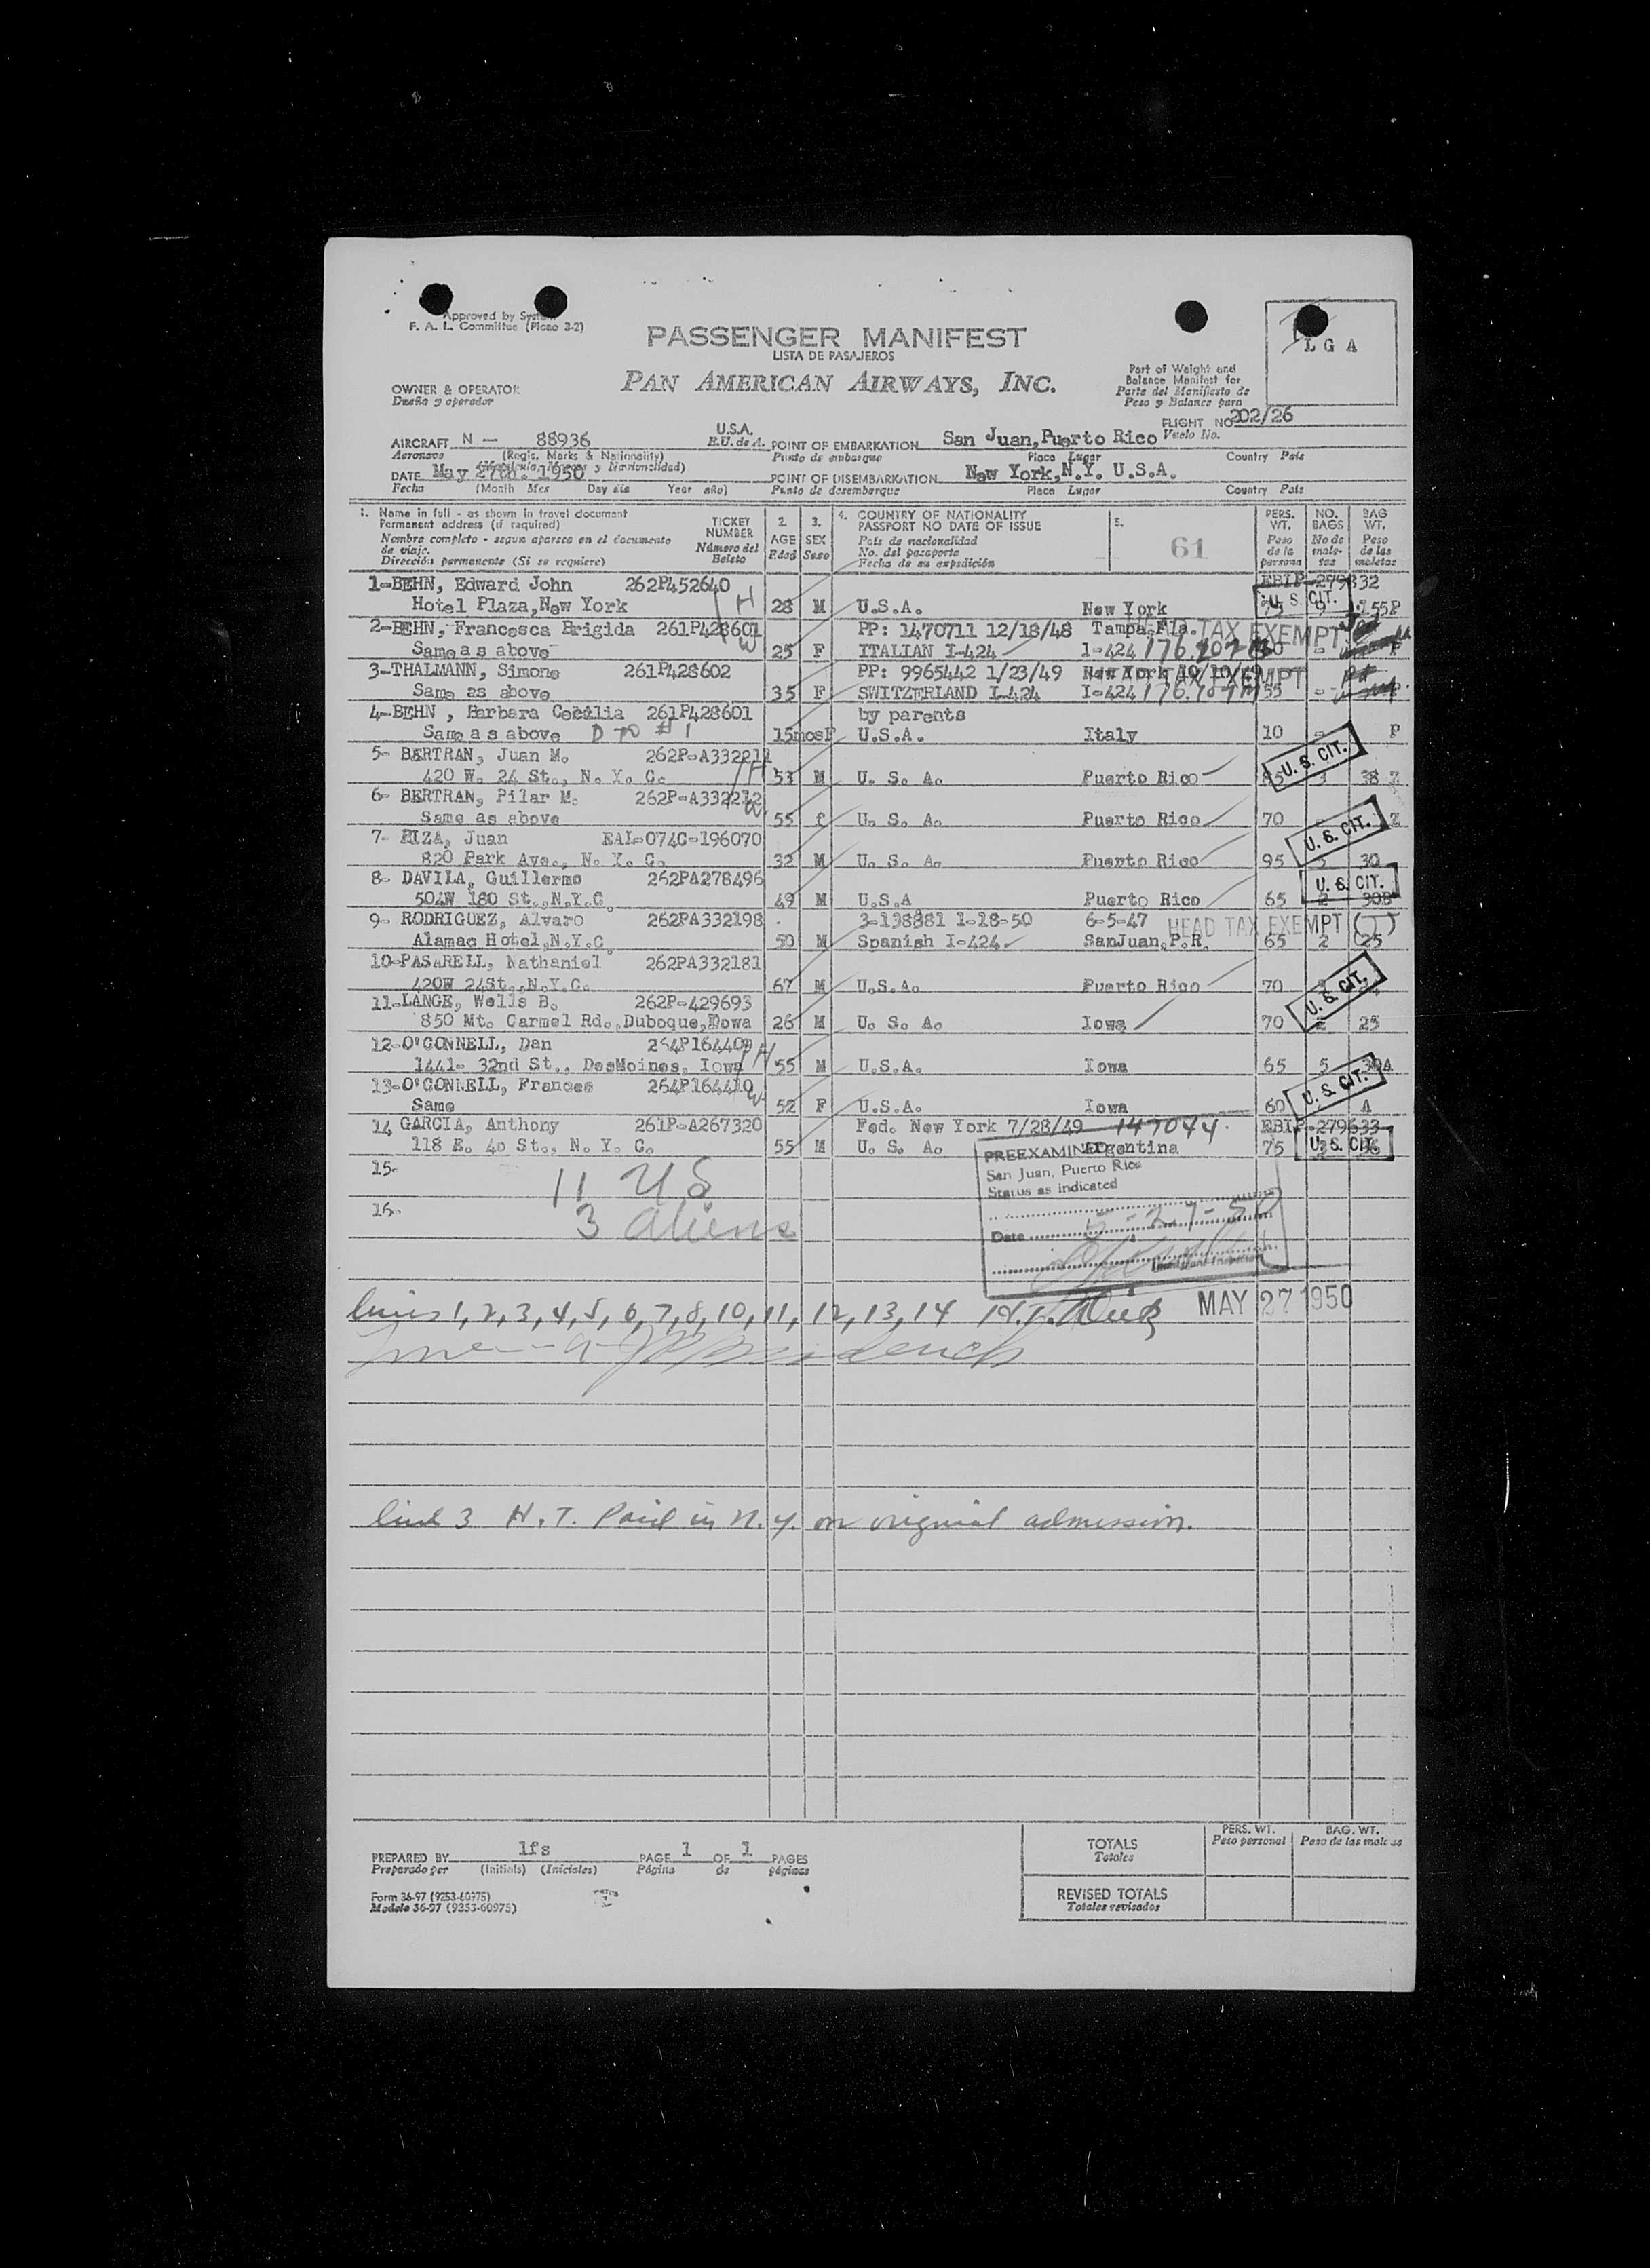 Approved by System
F. A. L. Committee (Picao 3-2)
PASSENGER MANIFEST
LISTA DE PASAJEROS
PAN AMERICAN AIRWAYS, INC.
LGA
Part of Weight and
Balance Manifest for
Parte del Manifiesto de
Peso y Balance para
OWNER & OPERATOR
Dueño y operador
FLIGHT NO 202/26
Vuelo No.
AIRCRAFT N - 88936 U.S.A.
Aeronave (Regis. Marks & Nationality) E.U. de A.
(Matricula, Marcas y Nacionalidad)
POINT OF EMBARKATION San Juan, Puerto Rico
Punto de embarque Place Lugar Country País
DATE May 27th. 1950
Fecha (Month Mes Day día Year año)
POINT OF DISEMBARKATION New York, N.Y. U.S.A.
Punto de desembarque Place Lugar Country País
1. Name in full - as shown in travel document
Permanent address (if required)
Nombre completo - segun aparece en el documento
de viaje.
Dirección permanente (Si se requiere)
TICKET
NUMBER
Número del
Boleto
2.
AGE
Edad
3.
SEX
Sexo
4. COUNTRY OF NATIONALITY
PASSPORT NO DATE OF ISSUE
País de nacionalidad
No. del pasaporte
Fecha de su expedición
5.
61
PERS.
WT.
Peso
de la
persona
NO.
BAGS
No de
male-
tas
BAG
WT.
Peso
de las
maletas
1-BEHN, Edward John 262P452640 EBIP-279832
Hotel Plaza, New York H 28 M U.S.A. New York 75 9 155P
U. S. CIT.
2-BEHN, Francesca Brigida 261P428601 PP: 1470711 12/18/48 Tampa, Fla. HEAD TAX EXEMPT
Same as above W 25 F ITALIAN I-424 1-424
3-THALMANN, Simone 261P428602 PP: 9965442 1/23/49 New York 10/10/49 HEAD TAX EXEMPT
Same as above 35 F SWITZERLAND I-424 I-424 55
4-BEHN, Barbara Cecilia 261P428601 by parents
Same as above D TO #1 15mos F U.S.A. Italy 10 - P
5- BERTRAN, Juan M. 262P-A332211
420 W. 24 St., N. Y. C. H 53 M U. S. A. Puerto Rico 85 3 38 Z
U. S. CIT.
6- BERTRAN, Pilar M. 262P-A332212
Same as above W 55 f U. S. A. Puerto Rico 70 Z
U. S. CIT.
7- BIZA, Juan EAL-074C-196070
820 Park Ave., N. Y. C. 32 M U. S. A. Puerto Rico 95 3 30
8- DAVILA, Guillermo 262PA278496
504W 180 St., N.Y.C. 49 M U.S.A Puerto Rico 65 2 30B
U. S. CIT.
9- RODRIGUEZ, Alvaro 262PA332198 3-138881 1-18-50 6-5-47 HEAD TAX EXEMPT
Alamac Hotel, N.Y.C. 50 M Spanish I-424 SanJuan, P.R. 65 2 25
10-PASARELL, Nathaniel 262PA332181
420W 24St., N.Y.C. 67 M U.S.A. Puerto Rico 70
U. S. CIT.
11-LANGE, Wells B. 262P-429693
850 Mt. Carmel Rd., Duboque, Iowa 26 M U. S. A. Iowa 70 2 25
12-O'CONNELL, Dan 264P164409
1441- 32nd St., DesMoines, Iowa H 55 M U.S.A. Iowa 65 5 30A
U. S. CIT.
13-O'CONNELL, Frances 264P164410
Same W 52 F U.S.A. Iowa 60 A
14 GARCIA, Anthony 261P-A267320 Fed. New York 7/28/49 147044. EBIP-279633
118 E. 40 St., N. Y. C. 55 M U. S. A. Argentina 75
U. S. CIT.
15-
16-
11 US
3 aliens
PREEXAMINED
San Juan, Puerto Rico
Status as indicated
Date 5-27-50
Immigrant Inspector
lines 1, 2, 3, 4, 5, 6, 7, 8, 10, 11, 12, 13, 14 MAY 27 1950
line 3 H. T. Paid in N. Y. on original admission.
PREPARED BY lfs PAGE 1 OF 1 PAGES
Preparado por (Initials) (Iniciales) Página de páginas
Form 36-97 (9253-60975)
Modelo 36-97 (9253-60975)
TOTALS
Totales
PERS. WT.
Peso personal
BAG. WT.
Peso de las maletas
REVISED TOTALS
Totales revisados